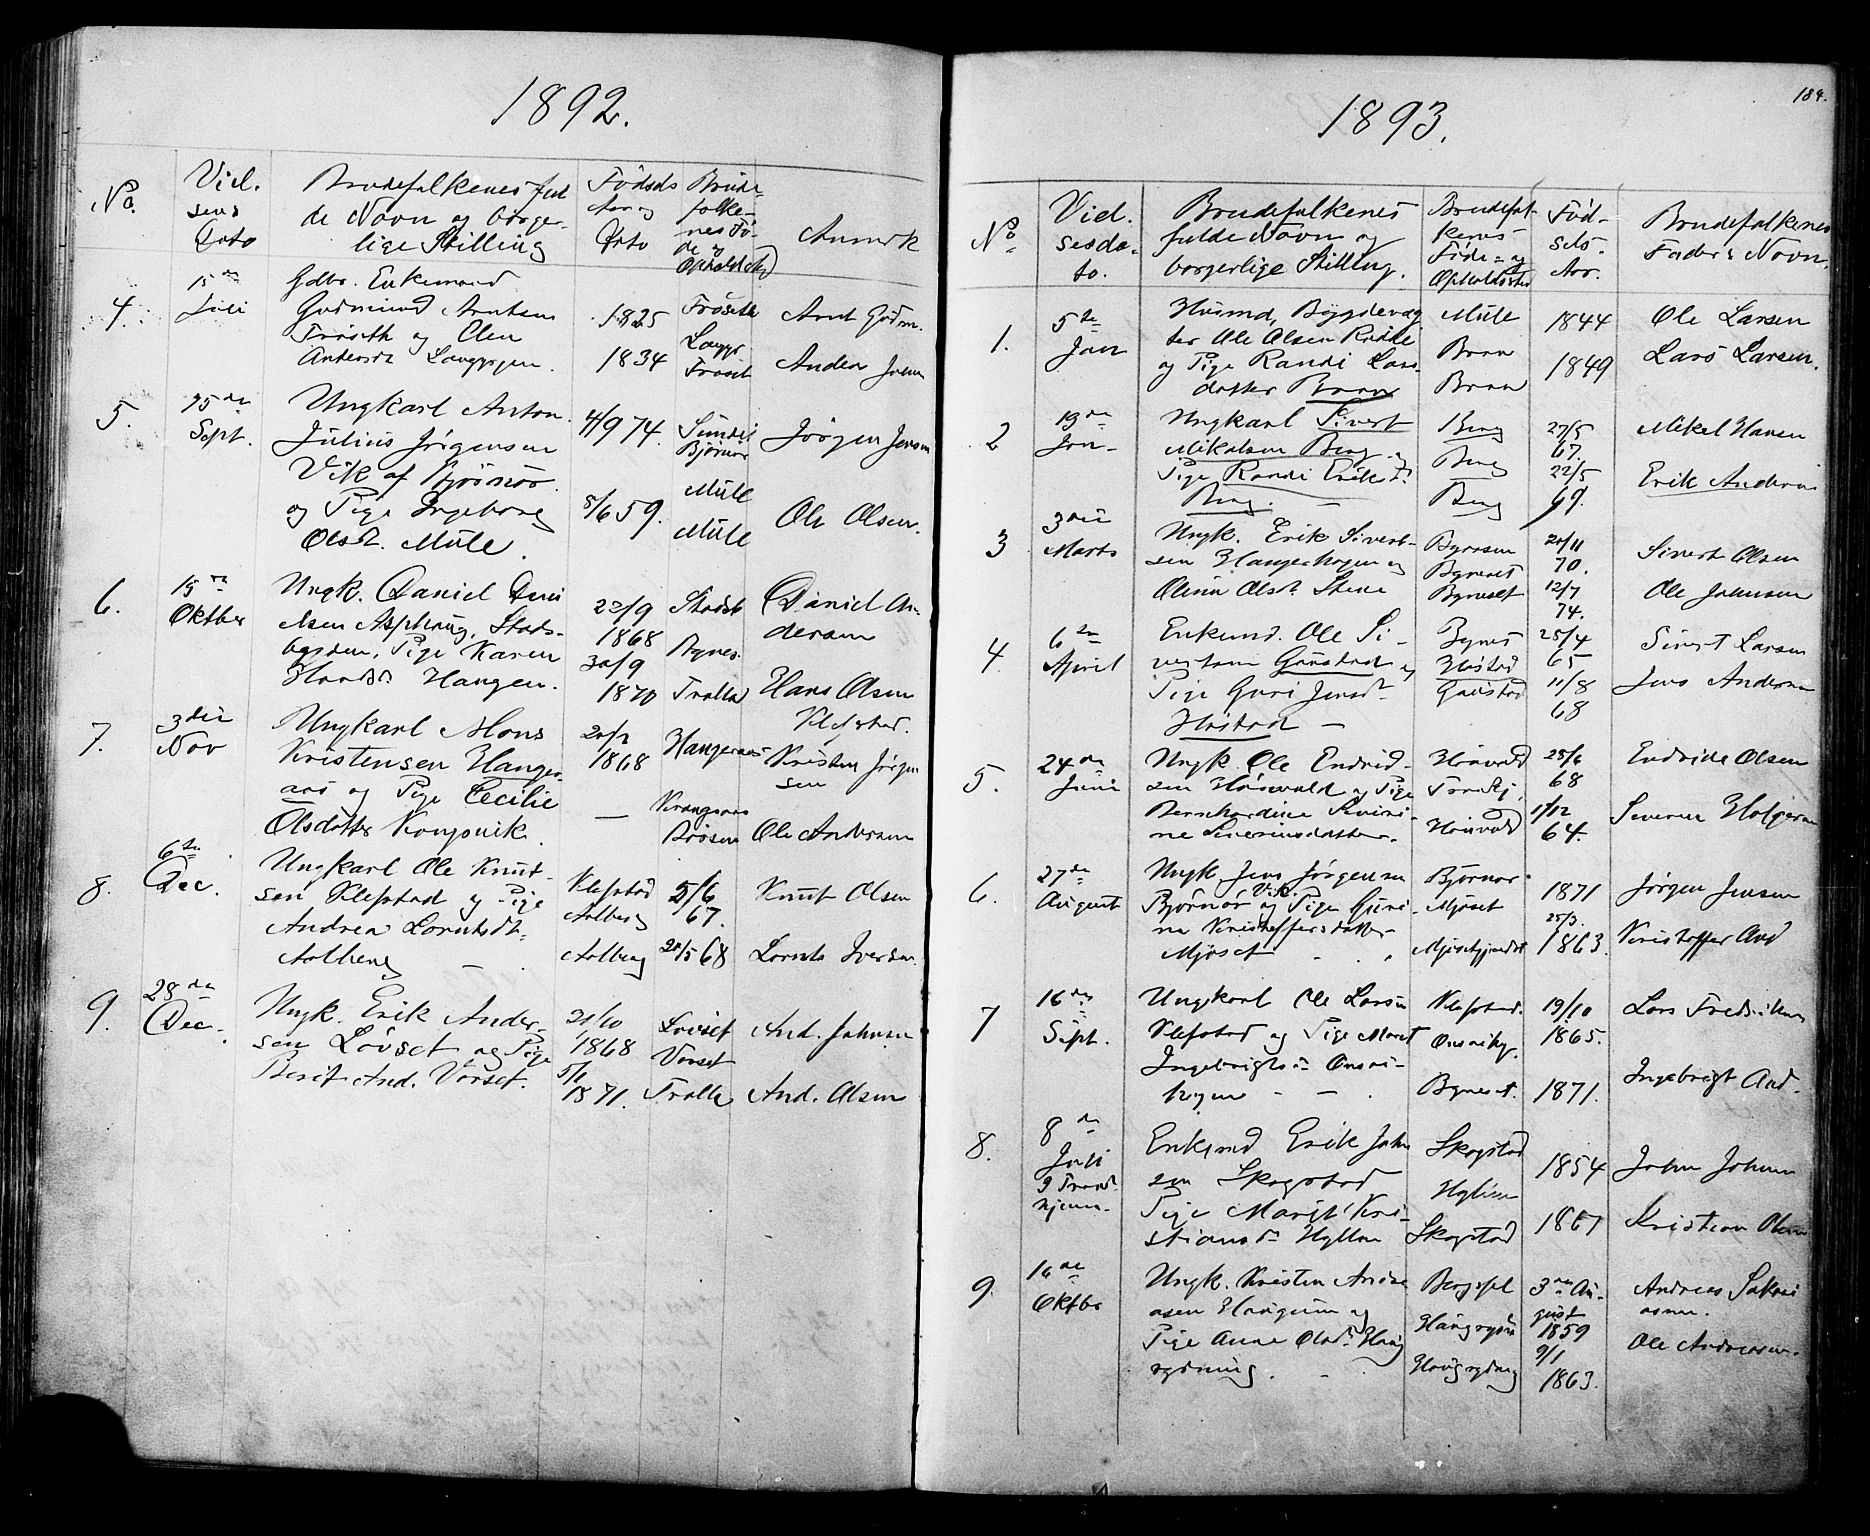 1892.
No.
Viel.
sens
Dato
Brudefolkenes ful
de Navn og borger
lige Stilling
Fødsels
Aar og
Dato
Brude-
folke-
nes Fø-
de og
Opholdsted
Anmerk
4.
15de
Juli
Gdbr. Enkemand
Gudmund Arntsen
Frøseth og Elen
Andersdr Langgrgen.
1825
1834
Frøseth
Langgr
Frøset
Arnt Gudm.
Anders John
5.
25de
Sept.
Ungkarl Anton
Julius Jørgensen
Vik af Bjørnør
og Pige Ingeborg
Olsdr. Mule.
4/9 74.
8/6 59.
Bjørnør
Mule
Mule
Jørgen Jensen
Ole Olsen.
6.
15de
Oktber
Ungk. Daniel Dani
elsen Asphaug, Stads-
bygden, Pige Karen
Hansdr Haugen.
22/9
1868
30/9
1870
Stadsb
Bynes.
Trolla
Daniel An
dersen
Hans Olsen
Klefstad.
7.
3die
Nov
Ungkarl Mons
Kristensen Hanger-
aas og Pige Cecilie
Olsdatter Kongsvik.
1868
—
Hangeraas
Kristen Jørgen
sen
Ole Andersen
8.
6te
Dec.
Ungkarl Ole Knut-
sen Klefstad og Pige
Andrea Lorntsdt
Aalberg —
Klefstad
Aalberg
Aalberg
5/6
67.
20/5 68
Knut Olsen
Lornts Iversen.
9.
28de
Dec.
Ungk. Erik Ander-
sen Løvset og Pige
Berit And. Vorset.
21/10
1868
5/1
1871.
Lovset
Vorset
Trolla
And. Johnsen
And. Olsen
184.
1893.
No
Viel.
sesda-
to.
Brudefolkenes
fulde Navn og
borgerlige Stilling.
Brudefol-
kenes
Føde- og
Opholdssted
Fød-
sels-
Aar.
Brudefolkenes
Faders Navn.
1.
5te
Jan
Husmd, Bygdevæg
ter Ole Olsen
og Pige Randi Lars-
datter Braa
Mule
Braa
Braa
1844
1849
Ole Larsen
Lars Larsen.
2
19de
Jan-
Ungkarl Sivert
Mikalsen Berg og
Pige Randi Eriksd.
Berg. —
Berg
Berg
Berg
27/5
67.
22/5
69.
Mikel Hansen
Erik Anderss
3
3die
Marts
Ungk. Erik Sivert-
sen Haugenhagen og
Olina Olsdr Stene
Byneset
Byneset
20/11
70.
12/7
74.
Sivert Olsen
Ole Johnsen
4.
6te
April
Enkemd. Ole Si-
vertsen Gaustad og
Pige Guri Jensd-
Høstad —
Bynes
Høstad
Gaustad
25/4
65
11/8
68
Sivert Larsen
Jens Andersen
5.
24de
Juni
Ungk. Ole Endrid-
sen Høiwald og Pige
Bernhardine Severi-
ne Severinsdatter.
Høivald
Trondhj,
Høivald
25/6
68
1/12
64.
Endride Olsen
Severin Holgersen
6.
27de
August
Ungk. Jens Jørgensen
Vik.
Bjørnør og Pige Guri-
na Kristoffersdatter
Mjøset - . .
Bjørnør
Mjøset
1871
25/3.
1863.
Jørgen Jensen
Kristoffer And
7
16de
Sept.
Ungkarl Ole Larsen
Klefstad og Pige Marit
Ingebrigtsdr Onsøi-
hagen - — .
Klefstad.
Byneset.
19/10
1865.
1871.
Lars Fredriksen
Ingebrigt And-
8.
8de
Juli
I Trond-
hjem.
Enkemd Erik John
sen Skogstad
Pige Marit Kri-
stiansdr Hyllan
Skogstad
Skogstad
1854
1867
John Johnsen
Kristian Olsen
9.
16de
Oktbr
Ungk. Kristen Andre
asen Haugum og
Pige Anne Olsdr Haug
rydning. -
Haugrydn
Haugrydning
3die Au-
gust
1859
9/1
1863.
Andreas Sakari
asen.
Ole Andreasen.